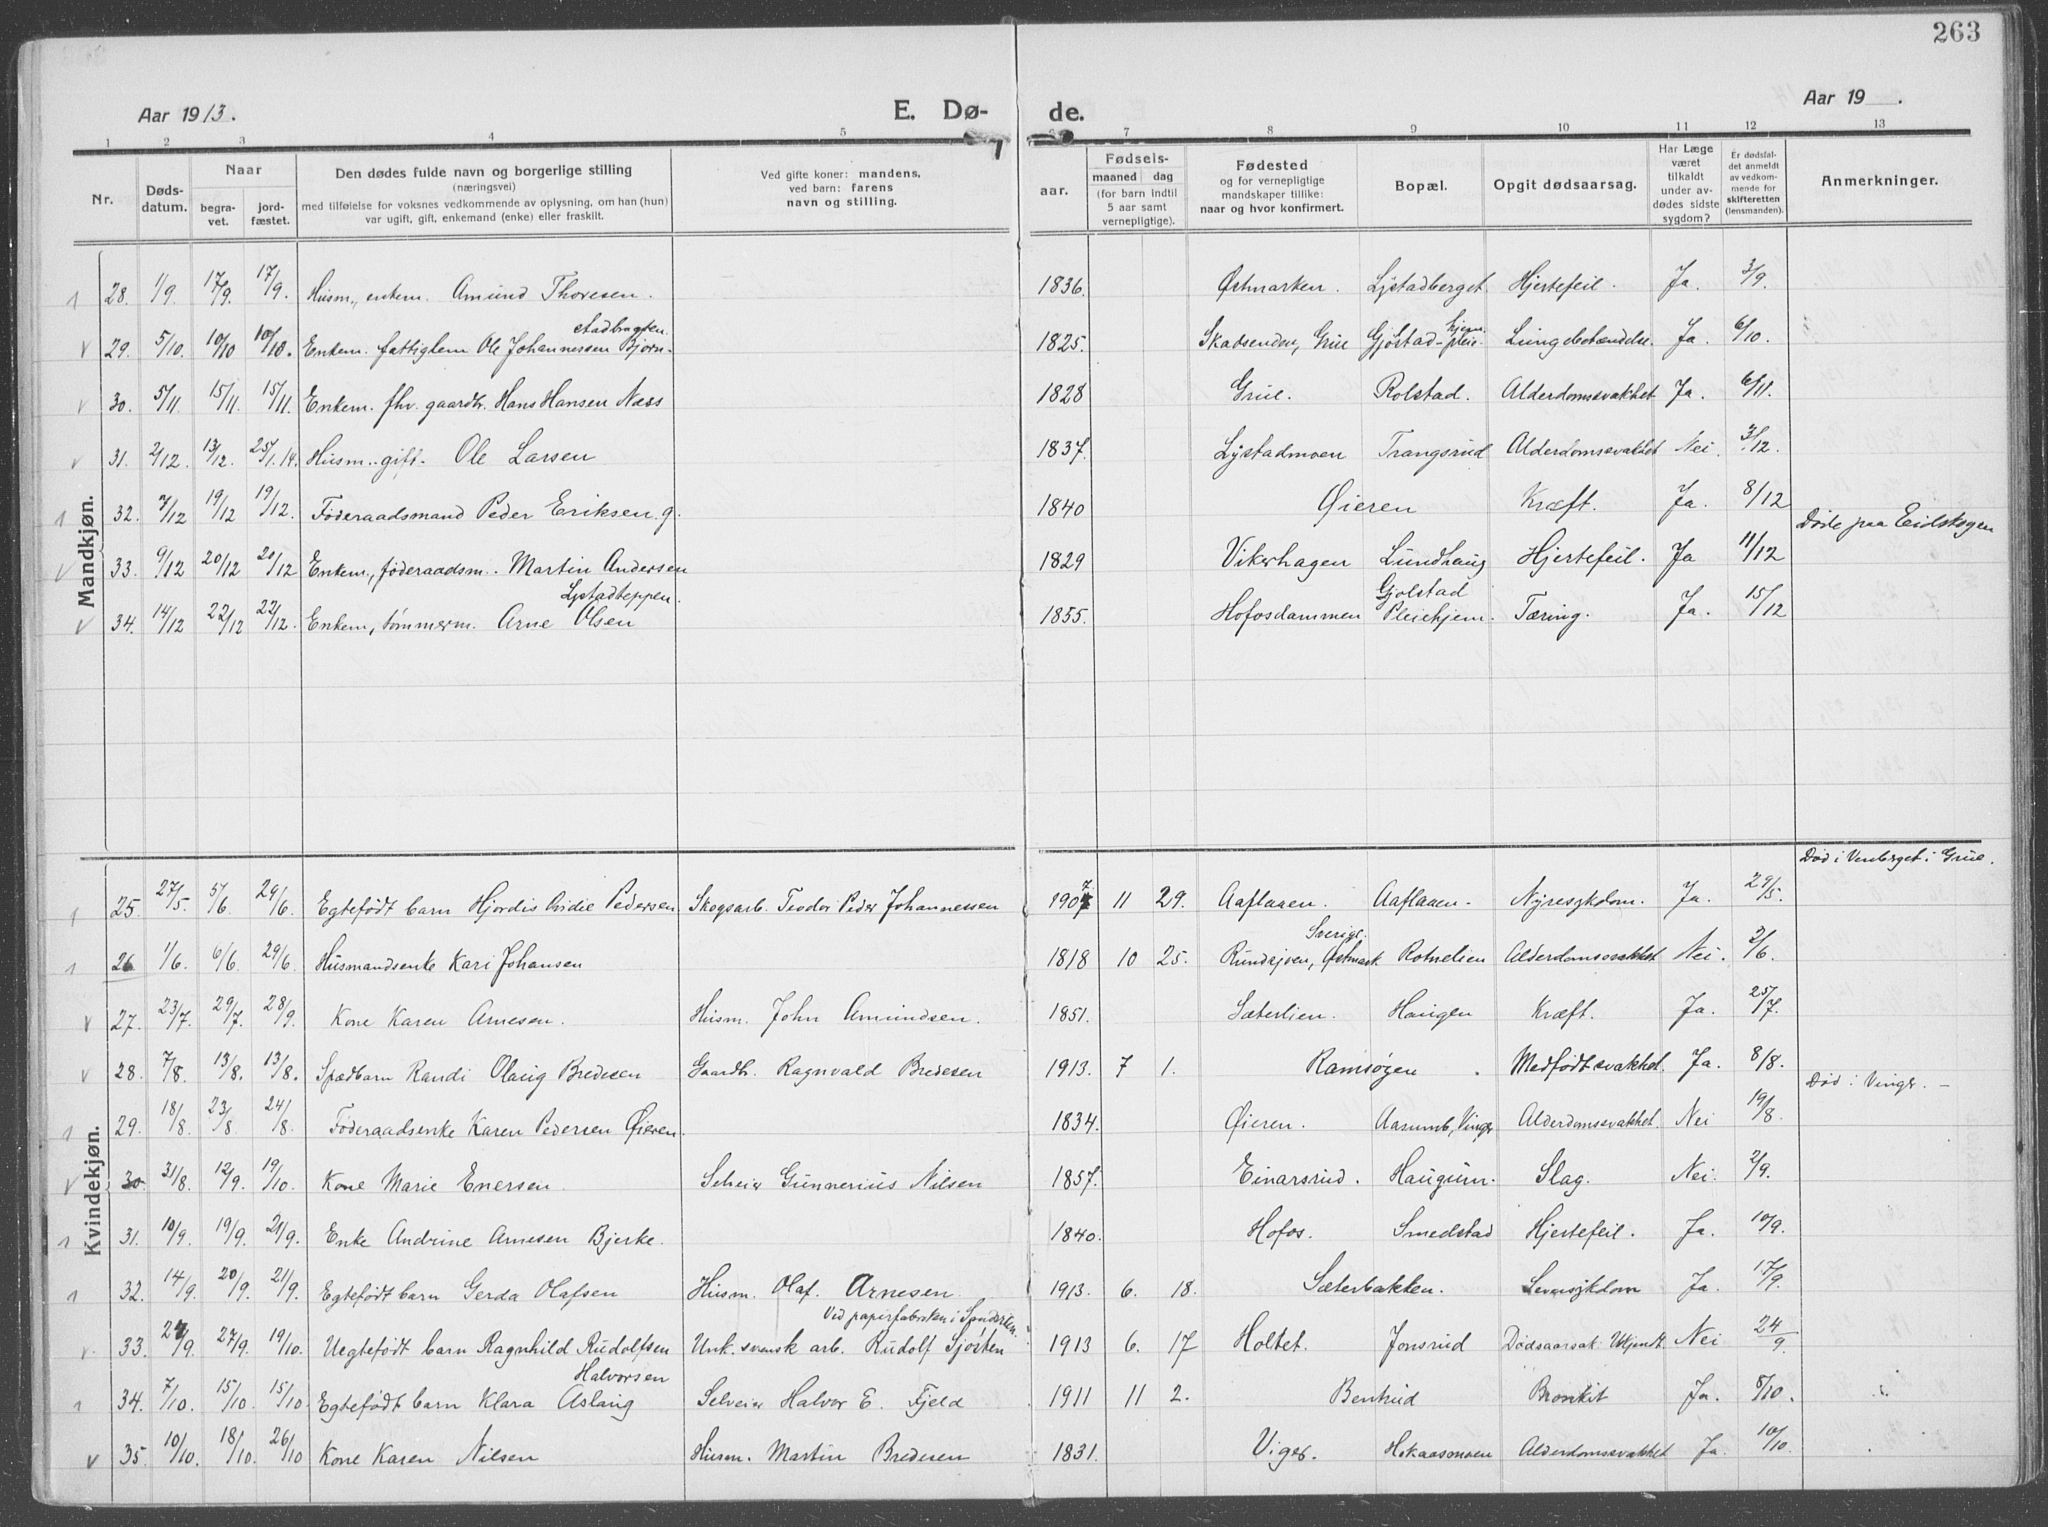 263
Aar 1913.
E. Dø-
de.
Aar 19 .
1 2 3 4 5 7 8 9 10 11 12 13
Nr.
Døds-
datum.
Naar
begra-
vet.
jord-
fæstet.
Den dødes fulde navn og borgerlige stilling
(næringsvei)
med tilføielse for voksnes vedkommende av oplysning, om han (hun)
var ugift, gift, enkemand (enke) eller fraskilt.
Ved gifte koner: mandens,
ved barn: farens
navn og stilling.
aar.
Fødsels-
maaned dag
(for barn indtil
5 aar samt
vernepligtige).
Fødested
og for vernepligtige
mandskaper tillike:
naar og hvor konfirmert.
Bopæl.
Opgit dødsaarsag.
Har Læge
været
tilkaldt
under av-
dødes sidste
sygdom?
Er dødsfal-
det anmeldt
av vedkom-
mende for
skifteretten
(lensmanden).
Anmerkninger.
Mandkjøn.
28. 1/9. 17/9. 17/9. Husm., enkem. Amund Thoresen. 1836. Østmarken. Lystadberget. Hjertefeil. Ja. 3/9.
stadbragten. hjem.
29. 5/10. 10/10 10/10. Enkem. fattiglem Ole Johannessen Bjørn- 1825. Skadsenden, Grue Gjøstad-pleie- Lungebetændelse. Ja. 6/10.
30. 5/11. 15/11. 15/11. Enkem. fhv. gaardbr. Hans Hansen Næss 1828 Grue. Rolstad. Alderdomssvakhet Ja. 6/11.
31. 2/12. 13/12. 25/1.14. Husm. gift. Ole Larsen 1837. Lystadmoen Trangsrud Alderdomssvakhet Nei. 3/12.
32. 7/12 19/12 19/12. Føderaadsmand Peder Eriksen g. 1840 Øieren Kræft. Ja. 8/12
Døde paa Eidskogen
33. 9/12 20/12 20/12 Enkem., føderaadsm. Martin Andersen 1829 Vikerhagen Lundhaug Hjertefeil. Ja 11/12
Lystadteppen. Gjølstad
34. 14/12 22/12 22/12. Enkem, tømmerm. Arne Olsen 1855. Hofosdammen Pleiehjem. Tæring. Ja. 15/12
Kvindekjøn.
Død i Venberget i Grue.
25. 27/5. 5/6. 29/6. Egtefødt barn Hjordis Ovidie Pedersen Skogsarb. Teodor Peder Johannessen 1907 11 29. Aaflaaen. Aaflaaen. Nyresykdom. Ja. 29/5.
Sverige.
26 1/6. 6/6. 29/6. Husmandsenke Kari Johansen 1818 10 25. Rundsjøen, Østmark Rotnelien Alderdomssvakhet Nei. 2/6.
27. 23/7. 29/7. 28/9. Kone Karen Arnesen. Husm. John Amundsen. 1851. Sæterlien. Haugen Kræft. Ja. 25/7.
28. 7/8. 13/8. 13/8. Spædbarn Randi Olaug Bredesen Gaardbr. Ragnvald Bredesen 1913. 7 1. Ramsøgen Medfødt svakhet. Ja. 8/8.
Død i Vinger.
29. 18/8. 23/8 24/8. Føderaadsenke Karen Pedersen Øieren. 1834. Øieren. Aarumb, Vinger Alderdomssvakhet. Nei 19/8.
30 31/8. 12/9. 19/10. Kone Marie Enersen. Selveier Gunnerius Nilsen 1857. Einarsrud. Haugum. Slag. Nei. 2/9.
31. 10/9. 19/9. 21/9. Enke Andrine Arnesen Bjerke. 1840. Hofos. Smedstad Hjertefeil. Ja. 10/9.
32. 14/9. 20/9. 21/9. Egtefødt barn Gerda Olafsen Husm. Olaf. Arnesen. 1913. 6. 18. Sæterbakken. Leversykdom Ja. 17/9.
Ved papirfabriken i
33. 24/9. 27/9. 19/10. Uegtefødt barn Ragnhild Rudolfsen Unk. svensk arb. Rudolf Sjøsten 1913 6. 17 Holtet. Jonsrud Dødsaarsak Ukjendt. Nei 24/9.
Halvorsen
34. 7/10. 15/10. 15/10 Egtefødt barn Klara Aslaug Selveier Halvor E. Fjeld 1911 11 2. Bentrud Bronkit Ja. 8/10.
35. 10/10. 18/10. 26/10 Kone Karen Nilsen Husm. Martin Bredesen 1831. Viger. Hokaasmoen Alderdomssvakhet Ja. 10/10.